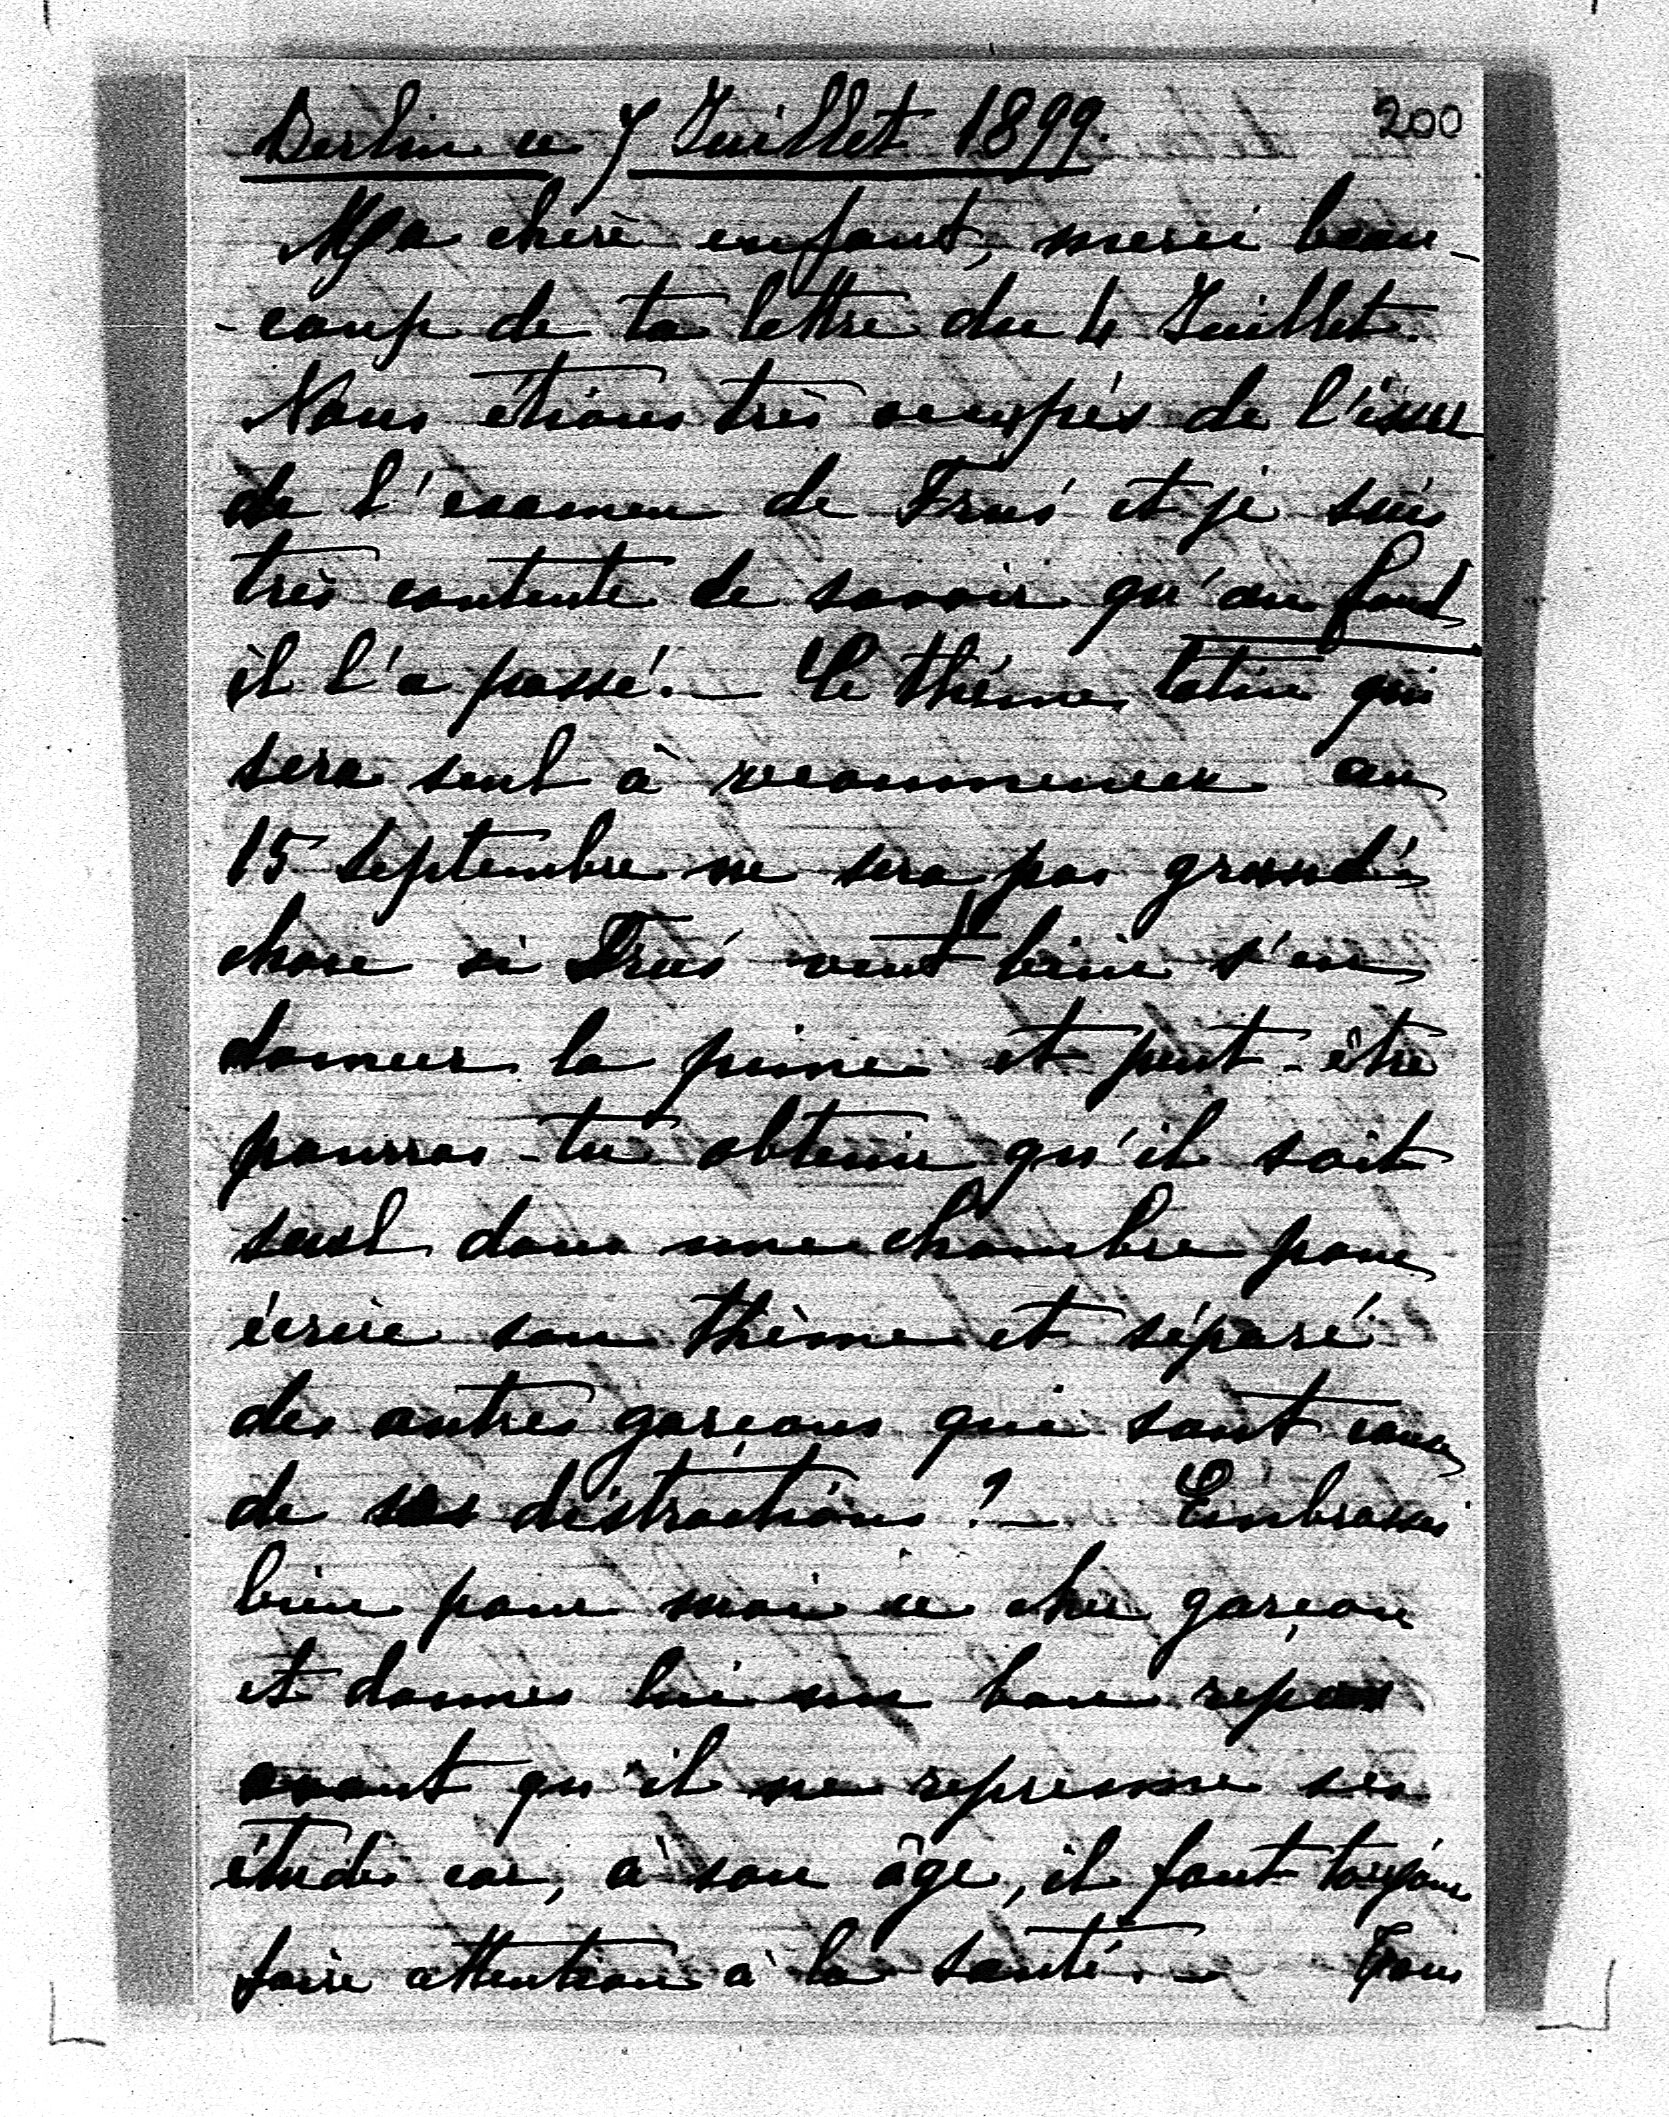 Berlin ce 7 Juillet 1899. 200
Ma chère enfant, merci beau-
-coup de ta lettre du 4 Juillet.
Nous étions très occupés de l'issue
de l'examen de Früs et je suis
très contente de savoir qu'au fond
il l'a passé. — Le thème latin qui
sera seul à recommencer au
15 Septembre ne sera pas grand'
chose si Früs veut bien s'en
donner la peine et peut-être
pourras-tu obtenir qu'il soit
seul dans une chambre pour
écrire son thème et séparé
des autres garçons qui sont cause
de ses distractions? — Embrasses
bien pour moi ce cher garçon
et donnes lui un bon repos
avant qu'il ne reprenne ses
études car, à son âge, il faut toujours
faire attention à la santé. —